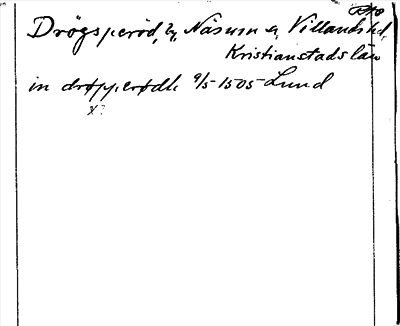 Drögsperöd, by, Näsum sn, Villands hd,
Kristianstads län
in drøpperødh 9/5 1505 Lund
x?